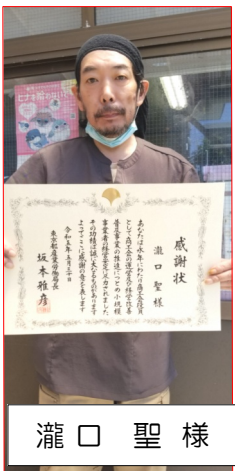 感謝状
瀧口 聖 様
あなたは永年にわたり商工会役員
として商工会の運営及び経営改善
普及事業の推進につとめ小規模
事業者の経営安定に尽力されました
その功績は誠に大なるものがあります
よってここに感謝の意を表します
令和五年五月三十日
東京都産業労働局長
坂本雅彦
瀧口 聖 様